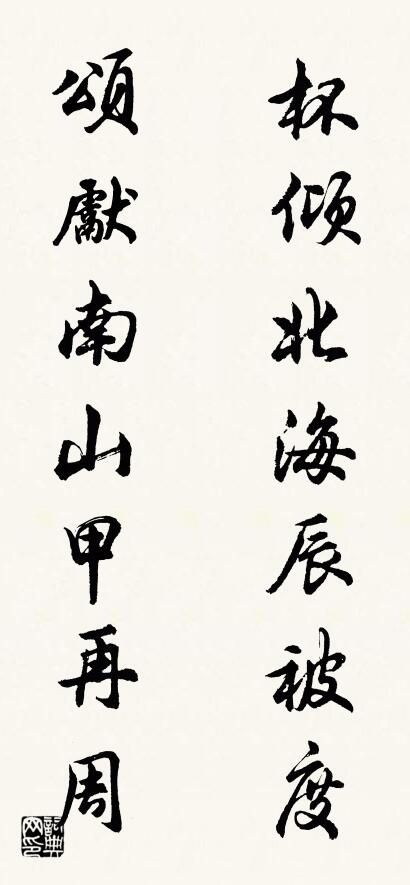 杯倾北海辰被度
頌獻南山甲再周